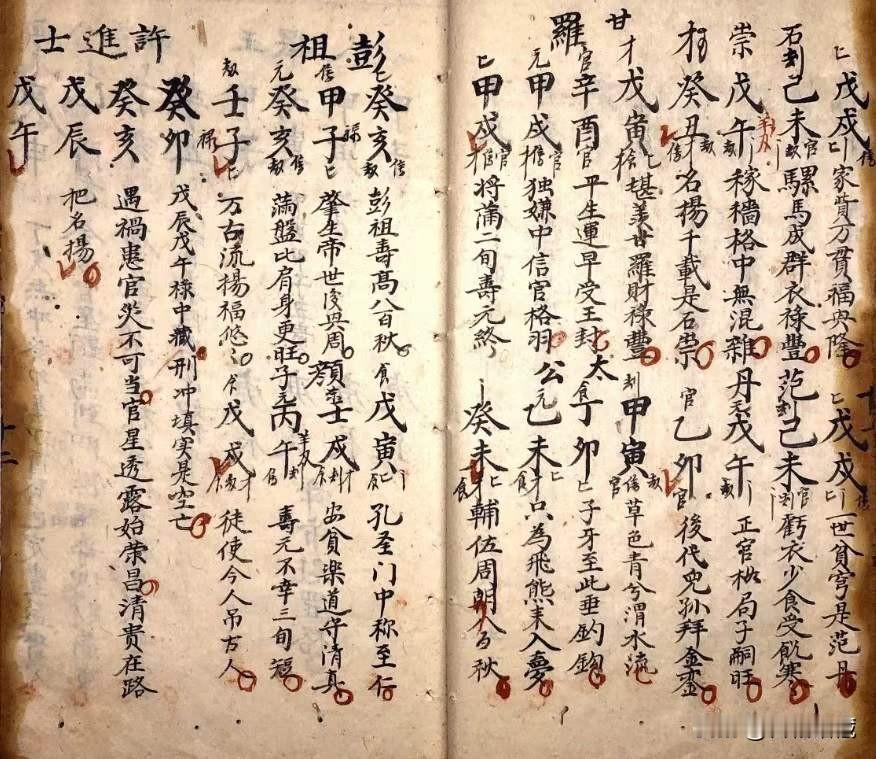 戊戌 家貲万貫福與隂 戊戌 一世貧穹是范丹
石 己未 騾馬成群衣禄豐 范 己未 虧衣少食受飢寒
崇 戊午 稼穡格中無混雜 丹 戊午 正官格局子嗣旺
才 癸丑 名揚千載是石崇 官 乙卯 後代兒孫拜金鑾
甘 才 戊寅 堪羡甘羅財禄豐 甲寅 草色青兮渭水流
羅 官 辛酉 平生運早受王封 太 丁卯 子牙至此垂钓鈎
元 甲戌 独嫌中信官格羽 公 己未 只為飛熊未入夢
甲戌 将蒲二旬壽元終 癸未 輔佐周朝八百秋
彭 癸亥 彭祖壽髙八百秋 戊寅 孔圣门中称至仁
祖 甲子 肇生帝世後與周 顔 壬戌 安贫楽道守清真
元 癸亥 滿盤比肩身更旺 子 丙午 壽元不幸三旬短
壬子 万古流揚福悠 戊戌 徒使今人吊古人
許進士
癸卯 戊辰戊午禄中藏刑冲填实是空亡
癸亥 遇禍患官災不可当官星透露始荣昌清貴在路
戊辰 把名揚
戊午
十二